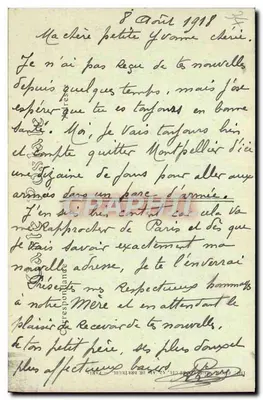 8 Août 1918
Ma chère petite Yvonne chérie.
Je n'ai pas reçue de tes nouvelles
depuis quelques temps, mais j'ose
espérer que tu es toujours en bonne
santé. Moi, je vais toujours bien
et compte quitter Montpellier d'ici
une dizaine de jours pour aller aux
armées dans un parc d'armée.
J'en suis très content car cela va
me Rapprocher de Paris et dès que
je vais savoir exactement ma
nouvelle adresse, je te l'enverrai
Présente mes Respectueux hommages
à notre Mère et en attendant le
plaisir de Recevoir de tes nouvelles.
de ton petit père, ses plus doux et
plus affectueux baisers
Correspondance
CARTE POSTALE